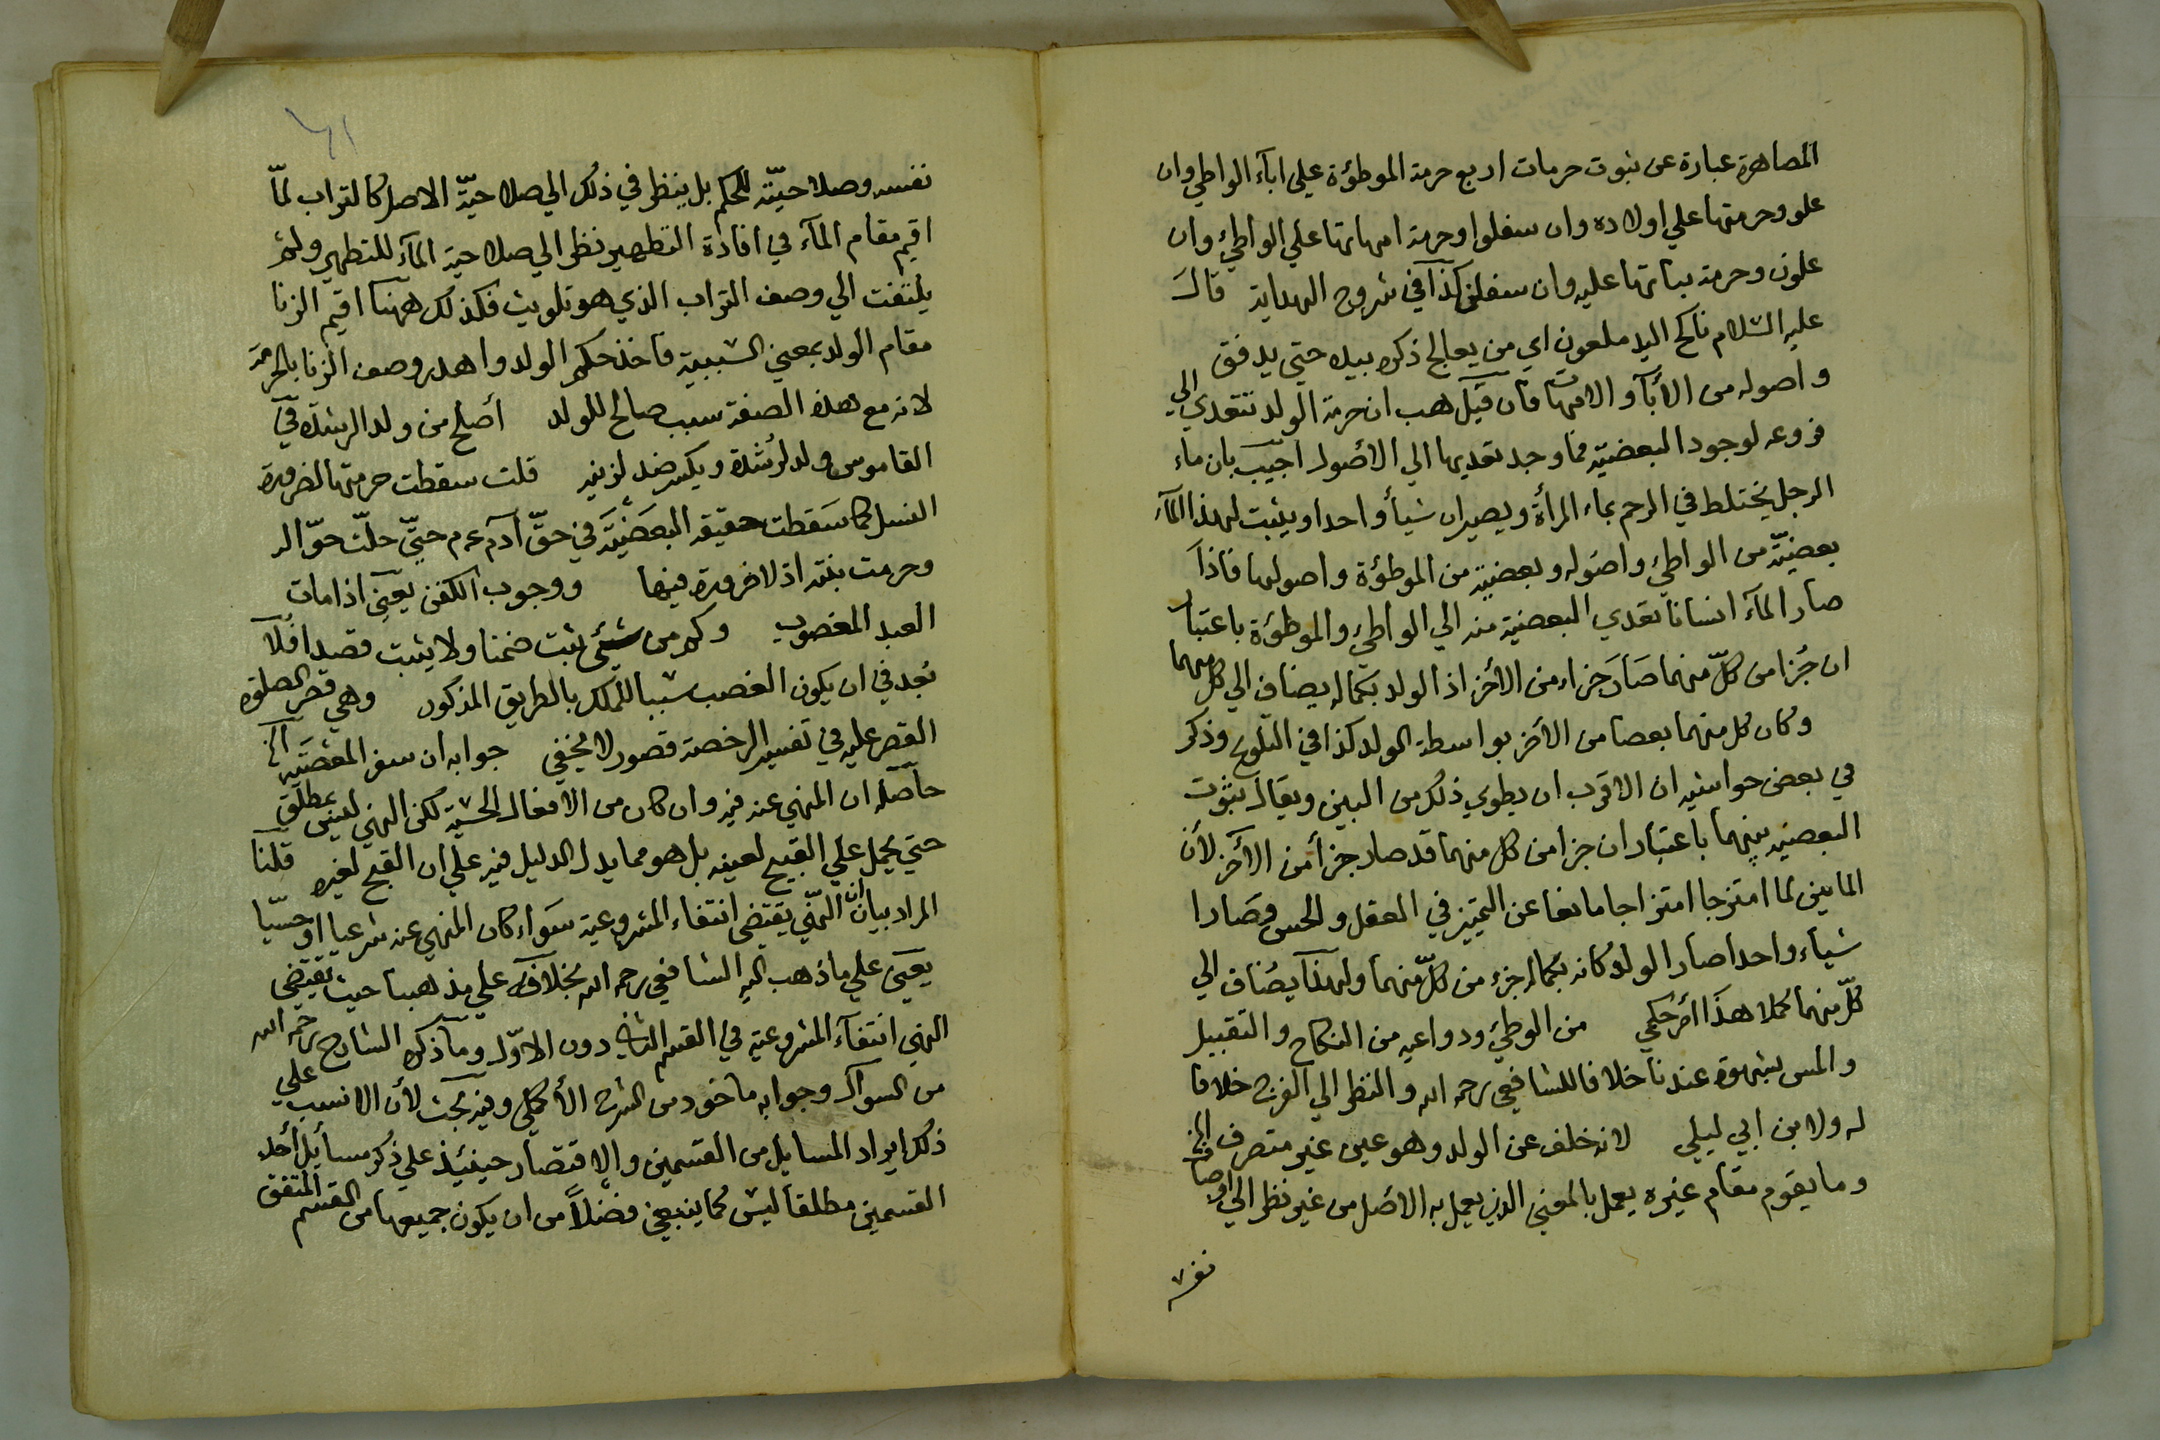 المصاهرة عبارة عن ثبوت حرمات اربع حرمة الموطؤة علي ابآء الواطي وان
علو وحرمتها علي اولاده وان سفلوا وحرمة امهاتها علي الواطئ وان
علون وحرمة بناتها عليه وان سفلن كذا في شروح الهداية قال
عليه السلام ناكح اليد ملعون اي من يعالج ذكره بيده حتي يدفق
واصوله من الأبآ والامهات فان قيل هب ان حرمة الولد تتعدي الي
فروعه لوجود البعضية فما وجه تعديها الي الاصول اجيب بان ماء
الرجل يختلط في الرحم بماء المرأة ويصيران شيأ واحدا ويثبت لهذا المآء
بعضية من الواطئ واصوله وبعضية من الموطؤة واصولها فاذا
صار المآء انسانا تعدي البعضية منه الي الواطئ والموطؤة باعتبار
ان جزا من كل منهما صار جزاء من الأخر اذ الولد بكماله يضاف الي كل منهما
وكان كل منهما بعضا من الأخر بواسطة الولد كذا في التلويح وذكر
في بعض حواشيه ان الاقرب ان يطوي ذلك من البين ويقال بثبوت
البعضية بينهما باعتبار ان جزا من كل منهما قد صار جزأ من الآخر لأن
المايين لما امتزجا امتزاجا مانعا عن التميز في العقل والحس وصارا
شياء واحدا صار الولد كانه بكماله جزء من كل منهما ولهذا يضاف الي
كل منهما كملا هذا أمر حكمي من الوطئ ودواعيه من النكاح والتقبيل
والمس بشهوة عندنا خلافا للشافعي رحمه الله والنظر الي الفرج خلافا
له ولابن ابي ليلي لانه خلف عن الولد وهو عين غير متصرف الخ
وما يقوم مقام غيره يعمل بالمعني الذي يعمل به الاصل من غير نظر الي اوصاف
نفسه
٦١
نفسه وصلاحيته للحكم بل ينظر في ذلك الي صلاحية الاصل كالتراب لما
اقيم مقام المآء في افادة التطهير نظر الي صلاحية المآء للتطهير ولم
يلتفت الي وصف التراب الذي هو تلويث فكذلك ههنا اقيم الزنا
مقام الولد بمعني السببية فاخذ حكم الولد واهدر وصف الزنا بالحرمة
لانه مع هذه الصفة سبب صالح للولد أصلح من ولد الرشدة في
القاموس ولد لرشدة ويكسر ضد لزنية قلت سقطت حرمتها لضرورة
النسل كما سقطت حقيقة البعضية في حق آدم ع م حتي حلت حوا له
وحرمت بنته اذ لا ضرورة فيها ووجوب الكفن يعني اذا مات
العبد المغصوب وكم من شيئ يثبت ضمنا ولا يثبت قصدا فلا
بعد في ان يكون الغصب سببا للملك بالطريق المذكور وهي قصر الصلوة
القصر عليه في تفسير الرخصة قصور لا يخفي جوابه ان سفر المعصية الخ
حاصله ان المنهي عنه فيه وان كان من الافعال الحسية لكن النهي ليس بمطلق
حتي يحمل علي القبيح لعينه بل هو مما يدل الدليل فيه علي ان القبح لغيره قلنا
المراد بيان ان النهي يقتضي انتفاء المشروعية سواء كان المنهي عنه شرعيا او حسيا
يعني علي ما ذهب اليه الشافعي رحمه الله بخلافه علي مذهبنا حيث يقتضي
النهي انتفآء المشروعية في القسم الثاني دون الاول وما ذكره الشارح رحمه الله
من السوال وجوابه ماخوذ من الشرح الأكملي وفيه بحث لأن الانسب علي
ذلك ايراد المسايل من القسمين والاقتصار حينئذ علي ذكر مسأيل أحد
القسمين مطلقا ليس كما ينبغي فضلا من ان يكون جميعها من القسم المتفق